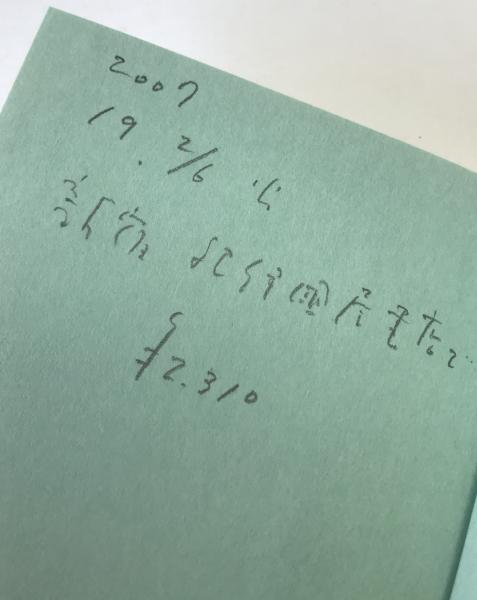 2007
19. 2/6 火
新宿 紀伊國屋書店で
¥2.310